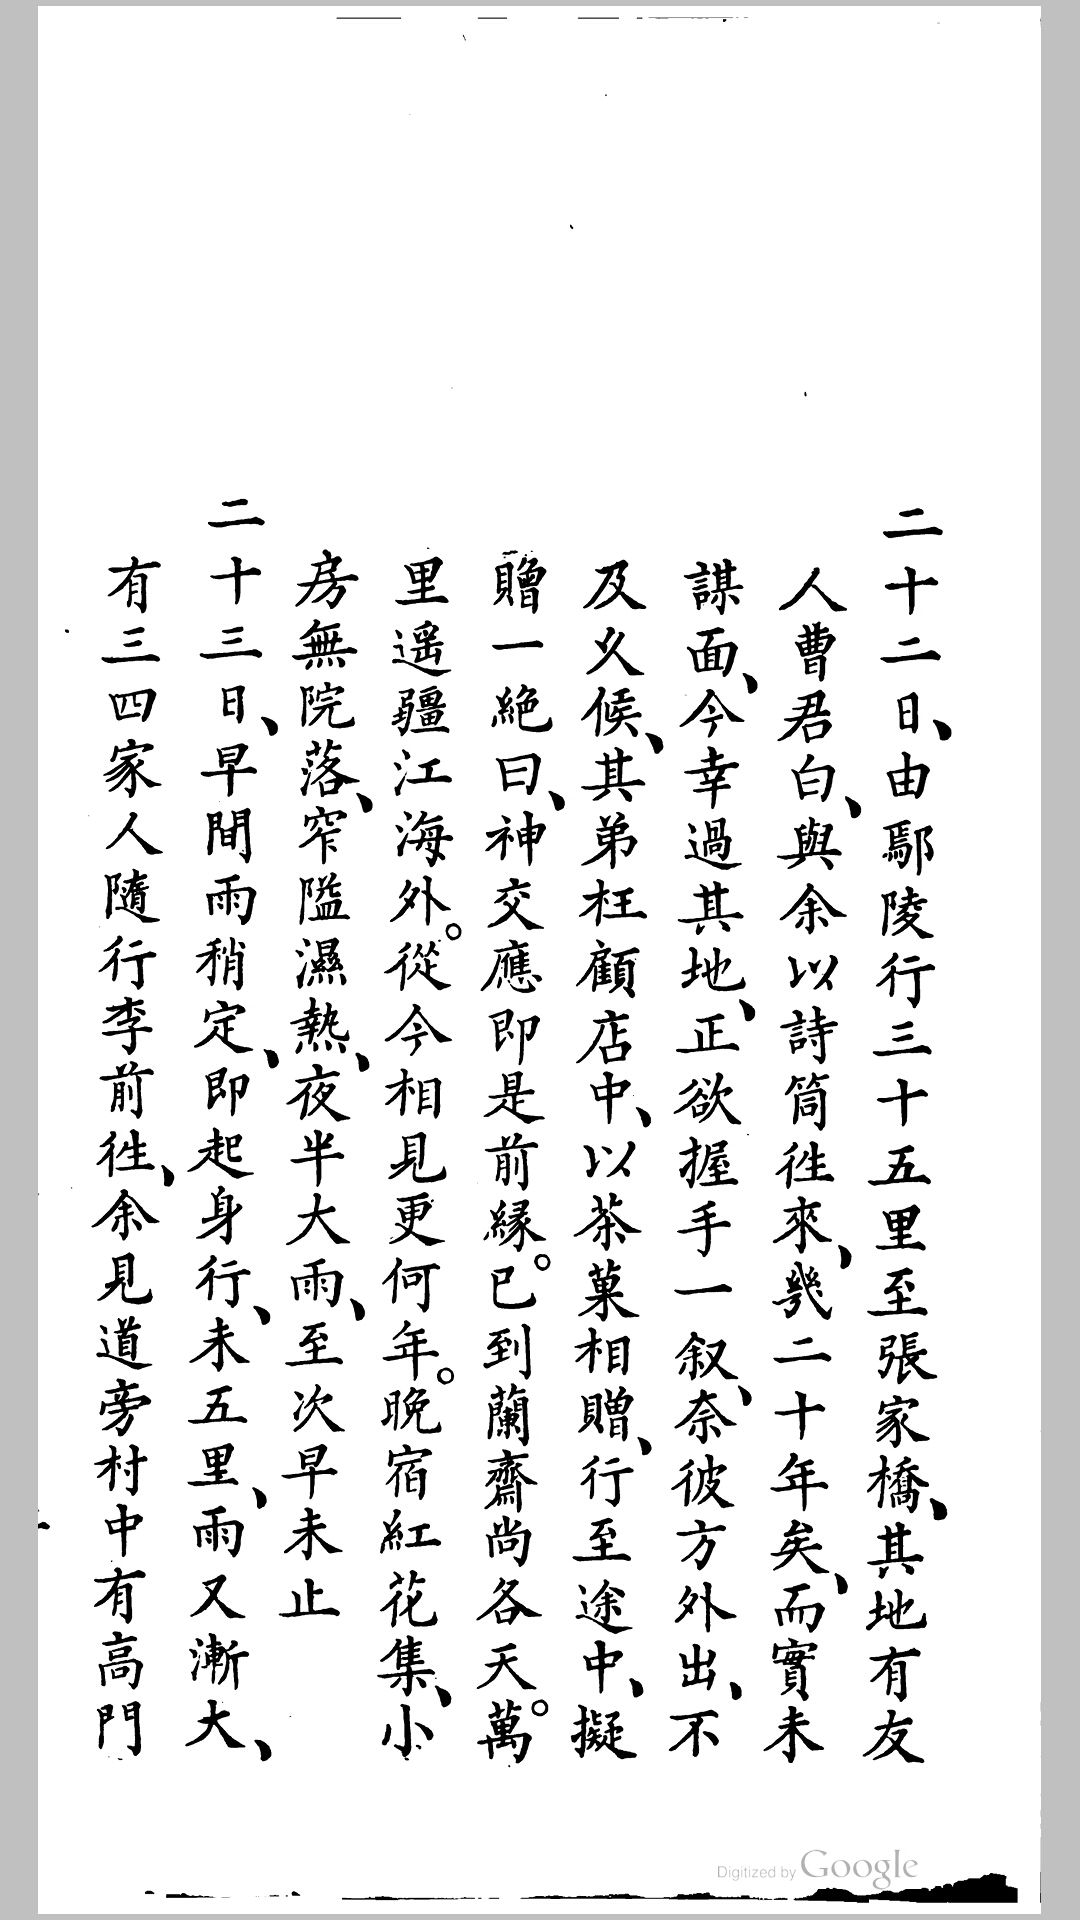 二十二日、由鄢陵行三十五里至張家橋、其地有友
人曹君白、與余以詩筒徃來、幾二十年矣、而實未
謀面、今幸過其地、正欲握手一叙、奈彼方外出、不
及久候、其弟枉顧店中、以茶菓相贈、行至途中、擬
贈一絶曰、神交應即是前緣。已到蘭齋尚各天。萬
里遥疆江海外。從今相見更何年。晩宿紅花集、小
房無院落、窄隘濕熱、夜半大雨、至次早未止
二十三日、早間雨稍定、即起身行、未五里、雨又漸大、
有三四家人隨行李前徃、余見道旁村中有高門
Digitized by Google